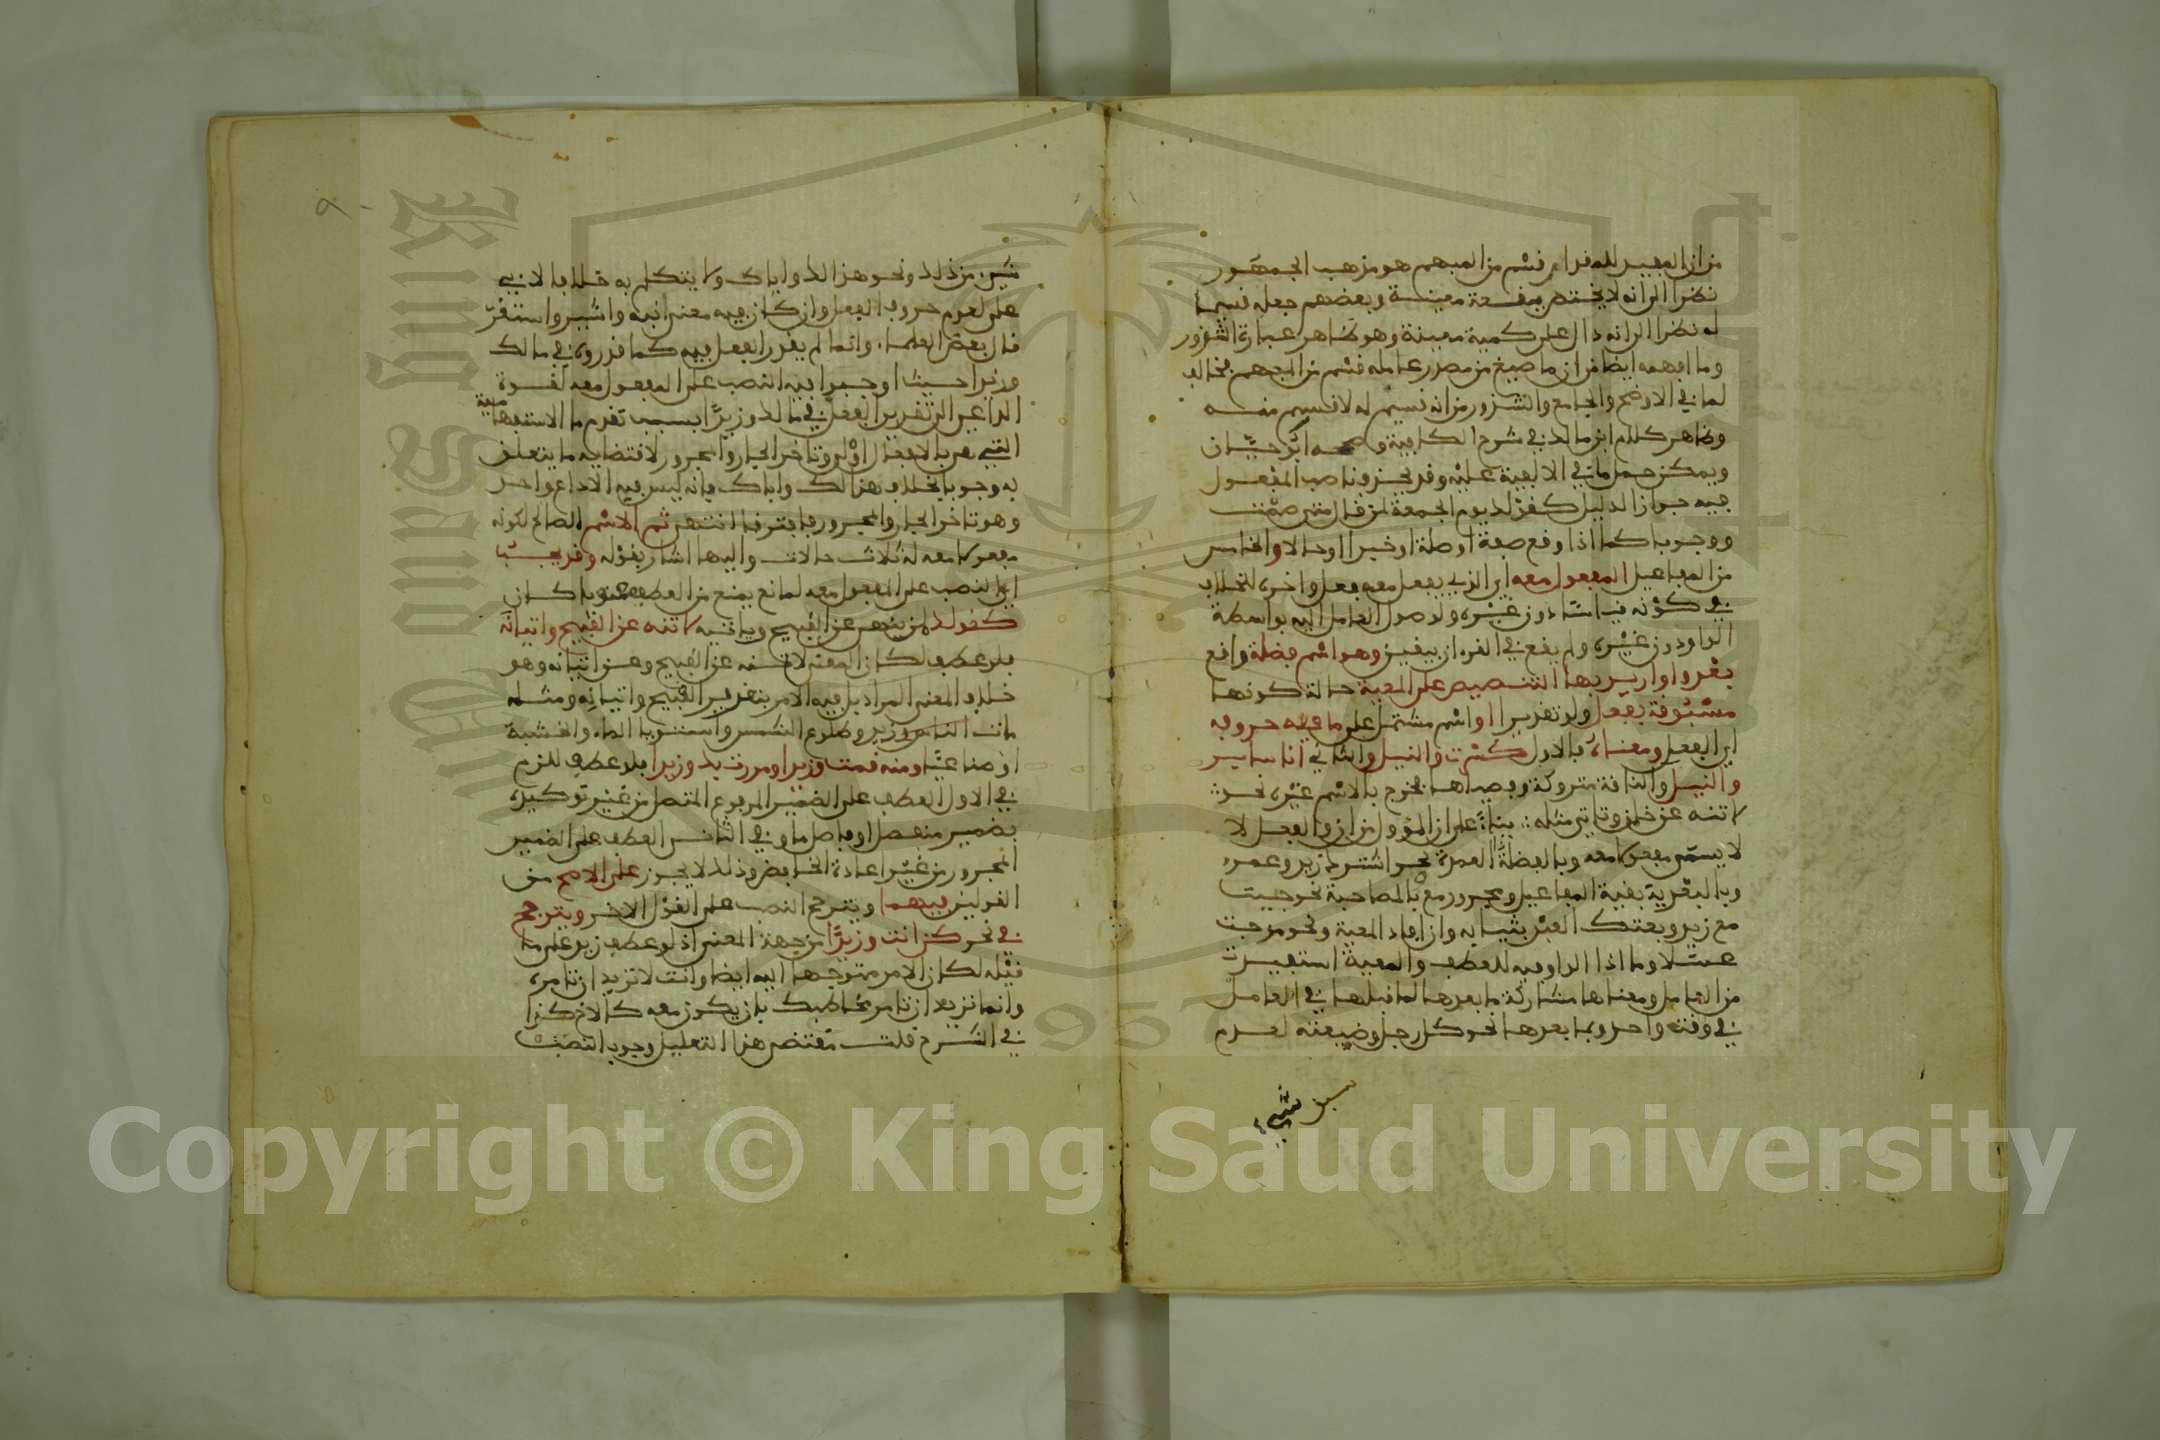 من ان المفيد للمقدار قسم من المبهم هو مذهب الجمهور
نظرا الى انه لا يختص ببقعة معينة وبعضهم جعله قسيما
له نظرا الى انه دال على كمية معينة وهو ظاهر عبارة الشذور
وما افهمه ايضا من ان ما صيغ من مصدر عامله قسم من المبهم مخالف
لما في الاوضح والجامع والشذور من انه قسيم له لا قسم منه
وظاهر كلام ابن مالك في شرح الكافية وصححه ابو حيان
ويمكن حمل ما في الالفية عليه وقد يحذف ناصب المفعول
فيه جوازا لدليل كقولك يوم الجمعة لمن قال متى صمت
ووجوبا كما اذا وقع صفة او صلة او خبرا او حالا والخامس
من المفاعيل المفعول معه اي الذي يفعل معه فعل واخره للخلاف
في كونه قياسا دون غيره ولوصول العامل اليه بواسطة
الواو دون غيره ولم يقع في القرءان بيقين وهو اسم فضلة واقع
بعد واو اريد بها التنصيص على المعية حالة كونها
مسبوقة بفعل ولو تقديرا او اسم مشتمل على ما فيه حروفه
اي الفعل ومعناه فالاول كسرت والنيل والثاني انا ساير
والنيل والناقة متروكة وفصيلها فخرج بالاسم غيره نحو
لا تنه عن خلق وتاتي مثله بناء على ان المؤول من ان والفعل لا
لا يسمى مفعولا معه وبالفضلة العمدة نحو اشترك زيد وعمرو
وبالبعدية بقية المفاعيل ومجرور مع بالمصاحبة نحو جيت
مع زيد وبعتك العبد بثيابه وان افاد المعية ونحو مزجت
عسلا وما اذا الواو فيه للعطف والمعية استفيدت
من العامل ومعناها مشاركة ما بعدها لما قبلها في العامل
في وقت واحد وبما بعدها نحو كل رجل وضيعته لعدم
شيء من ذلك ونحو هذا لك واباك ولا يتكلم به خلافا لابي
علي لعدم حروف الفعل وان كان فيه معنى انبه واشير واستقر
قال بعض العلماء وانما لم يقدر الفعل فيه كما قدروه في مالك
وزيدا حيث اوجبوا فيه النصب على المفعول معه لقوة
الداعي الى تقدير الفعل في مالك وزيدا بسبب تقدم ما الاستفهامية
التي هي بالافعال اولى وتاخر الجار والمجرور لاقتضايه ما يتعلق
به وجوبا بخلاف هذا لك واباك فانه ليس فيه الا داع واحد
وهو تاخر الجار والمجرور فافترقا انتهى ثم الاسم الصالح لكونه
مفعولا معه له ثلاث حالات واليها اشار بقوله وقد يجب
اي النصب على المفعول معه لمانع يمنع من العطف معنويا كان
كقولك لمن ينهى عن القبيح وياتيه لا تنه عن القبيح واتيانه
فلو عطف لكان المعنى لا تنه عن القبيح وعن اتيانه وهو
خلاف المعنى المراد بل فيه الامر بتقدير القبيح واتيانه ومثله
مات الناس وزيد وطلوع الشمس واستوى الماء والخشبة
او صناعيا ومنه قمت وزيدا ومررت بك وزيدا فلو عطف للزم
في الاول العطف على الضمير المرفوع المتصل من غير توكيده
بضمير منفصل او فاصل ما وفي الثاني العطف على الضمير
المجرور من غير اعادة الخافض وذلك لا يجوز على الاصح من
القولين فيهما ويترجح النصب على القول الاخر ويترجح
في نحو كن انت وزيدا من جهة المعنى اذ لو عطف زيد على ما
قبله لكان الامر متوجها اليه ايضا وانت لا تريد ان تامره
وانما تريد ان تامر مخاطبك بان يكون معه كالاخ كذا
في الشرح قلت مقتضى هذا التعليل وجوب النصب
من شيء
Copyright © King Saud University
King Saud University
1957